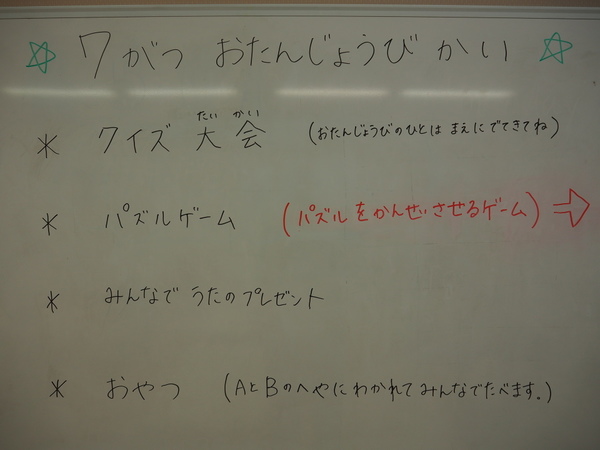 ☆ 7がつ おたんじょうびかい ☆
たい かい
* クイズ 大会 (おたんじょうびのひとは まえにでてきてね)
* パズルゲーム (パズルをかんせいさせるゲーム) ⇨
* みんなで うたのプレゼント
* おやつ (AとBのへやにわかれてみんなでたべます。)